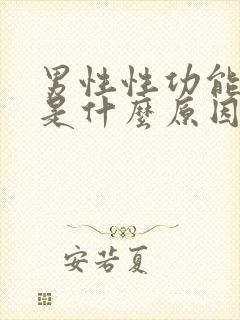 男性性功能
是什麼原因
安若夏